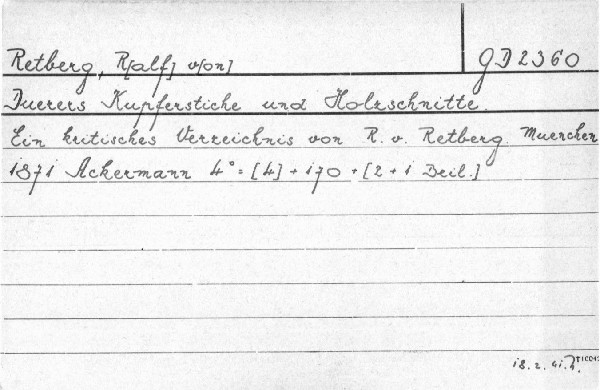 Retberg, R[alf] v[on] GD 2360
Duerers Kupferstiche und Holzschnitte.
Ein kritisches Verzeichnis von R. v. Retberg. Muenchen
1871 Ackermann 4° = [4] + 170 + [2 + 1 Beil.]
18. 2. 41.